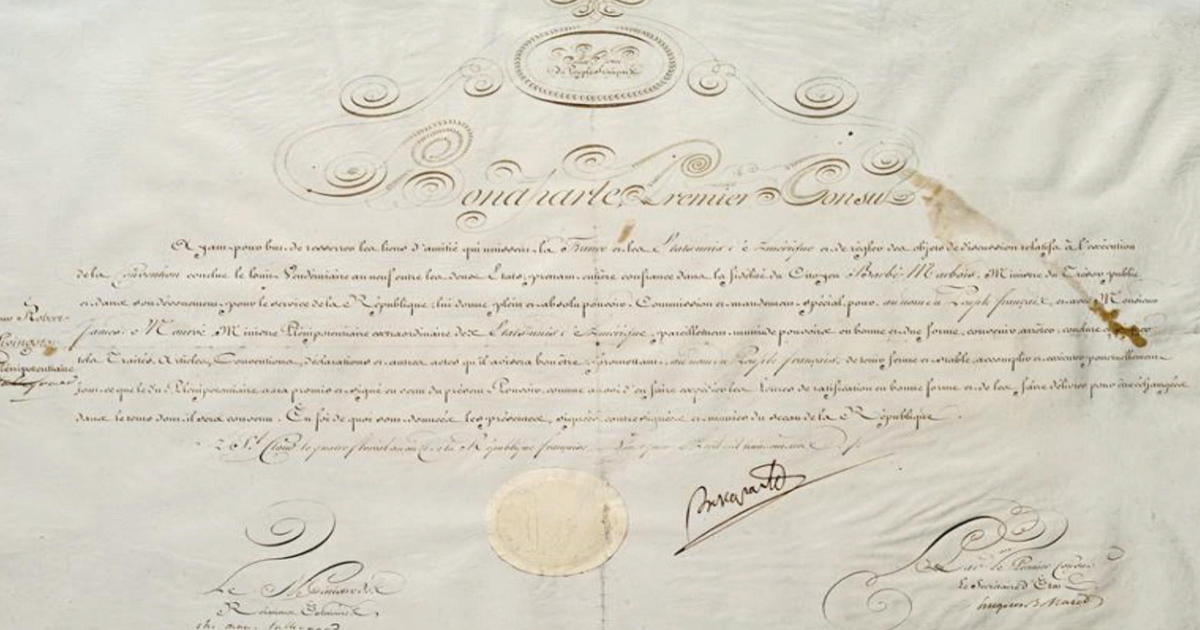 Au Nom
Du Peuple français
Bonaparte, Premier Consul
Ayant pour but de resserrer les liens d'amitié qui unissent la France et les Etats unis d'Amérique et de régler des objets de discussion relatifs à l'exécution
de la Convention conclue le huit Vendémiaire an neuf entre les deux Etats, prenant entière confiance dans la fidélité du Citoyen Barbé Marbois, Ministre du Trésor public
et dans son dévouement pour le service de la République, lui donne plein et absolu pouvoir, Commission et mandement spécial pour, au nom du Peuple français, et avec Monsieur
James Monroe, Ministre Plénipotentiaire extraordinaire des Etats unis d'Amérique, pareillement muni de pouvoirs en bonne et due forme, convenir, arrêter, conclure et
tels Traités, Articles, Conventions, déclarations et autres actes qu'il avisera bon être. Promettant, au nom du Peuple français, de tenir ferme et stable, accomplir et exécuter ponctuellement
tout ce que le dit Plénipotentiaire aura promis et signé en vertu du présent Pouvoir, comme aussi d'en faire expédier les Lettres de ratification en bonne forme et de les faire délivrer pour être échangées
dans le tems dont il sera convenu. En foi de quoi sont données les présentes, signées, contresignées et munies du sceau de la République.
Robert
Livingston
Plénipotentiaire
A St. Cloud le quatre floréal an onze de la République française
Bonaparte
Le Ministre des
Relations Extérieures
Par le Premier Consul
Le Secrétaire d'Etat
Hugues B. Maret